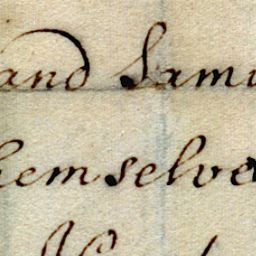 and Samu
hemselve